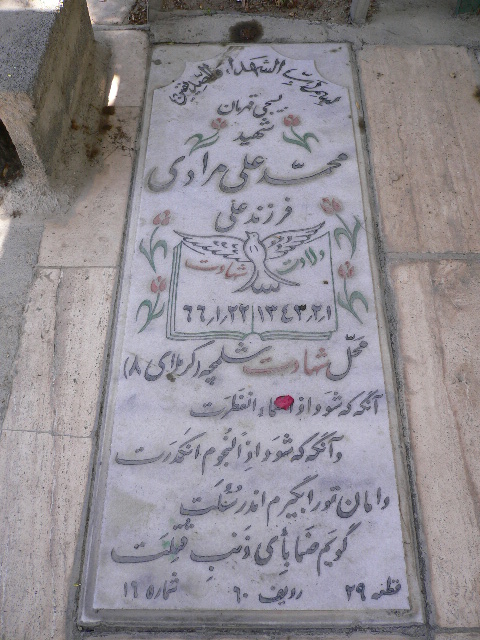 بسم رب الشهداء و الصدیقین
بسیجی تهران
شهید
محمّد علی مرادی
فرزند علی
ولادت شهادت
۱۳۴۳٫۲٫۱ ۶۶٫۱٫۲۲
محلّ شهادت شلمچه (کربلای ۸)
آنگه که شَوَد اذا السماء انفَطَرَت
وآنگه که شَوَد اذِ النُجوم انکَدَرَت
دامان تو را بگیرم اندر سُئِلَت
گویم صَنَما بِأَیِّ ذَنبٍ قُتِلَت
قطعه ۲۹ ردیف ۶۰ شماره ۱۶